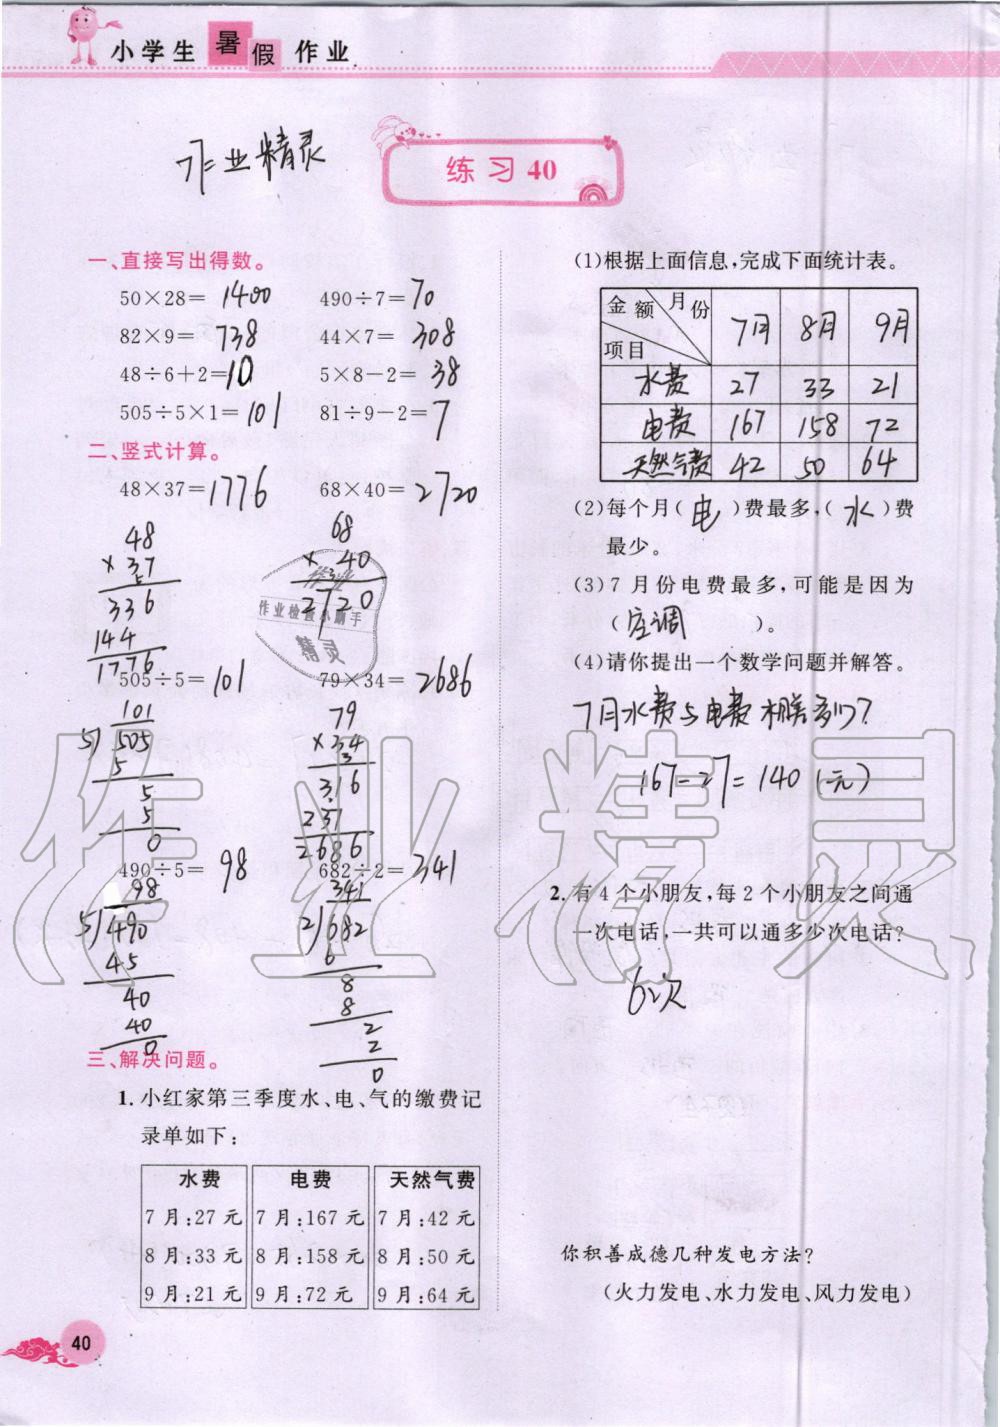 小学生暑假作业
作业精灵
练习 40
一、直接写出得数。
50×28= 1400 490÷7= 70
82×9= 738 44×7= 308
48÷6+2= 10 5×8-2= 38
505÷5×1= 101 81÷9-2= 7
二、竖式计算。
48×37= 1776 68×40= 2720
48 68
×37 ×40
336 2720
144
1776
作业
作业检查小助手
精灵
505÷5= 101 79×34= 2686
101 79
5)505 ×34
5 316
5 237
5 2686
0
490÷5= 98 682÷2= 341
98 341
5)490 2)682
45 6
40 8
40 8
0 2
2
0
三、解决问题。
1. 小红家第三季度水、电、气的缴费记
录单如下:
水费 电费 天然气费
7月:27元 7月:167元 7月:42元
8月:33元 8月:158元 8月:50元
9月:21元 9月:72元 9月:64元
40
(1)根据上面信息,完成下面统计表。
金额 月份 项目 7月 8月 9月
水费 27 33 21
电费 167 158 72
天然气费 42 50 64
(2)每个月( 电 )费最多,( 水 )费
最少。
(3)7月份电费最多,可能是因为
( 空调 )。
(4)请你提出一个数学问题并解答。
7月水费与电费相差多少?
167-27=140(元)
2. 有4个小朋友,每2个小朋友之间通
一次电话,一共可以通多少次电话?
6次
你积善成德几种发电方法?
(火力发电、水力发电、风力发电)
作业精灵